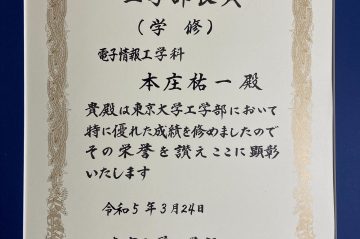 工学部長賞
（学　修）
電子情報工学科
本庄祐一 殿
貴殿は東京大学工学部において
特に優れた成績を修めましたので
その栄誉を讃えここに顕彰
いたします
令和５年３月24日